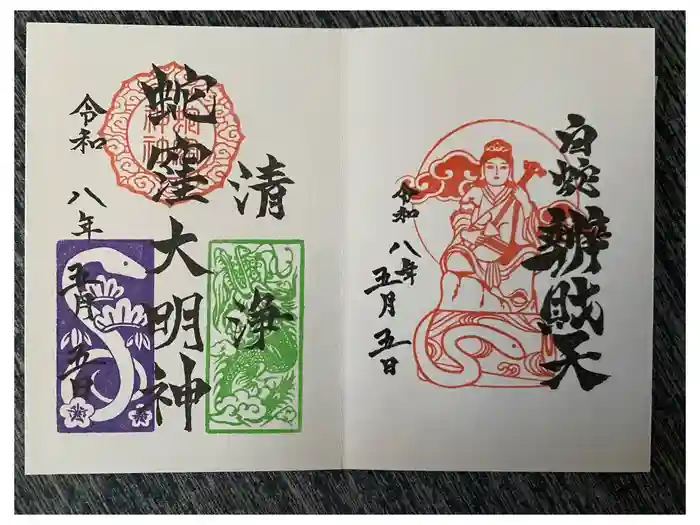 白蛇辨財天
令和八年五月五日
清浄
蛇窪大明神
令和八年五月五日